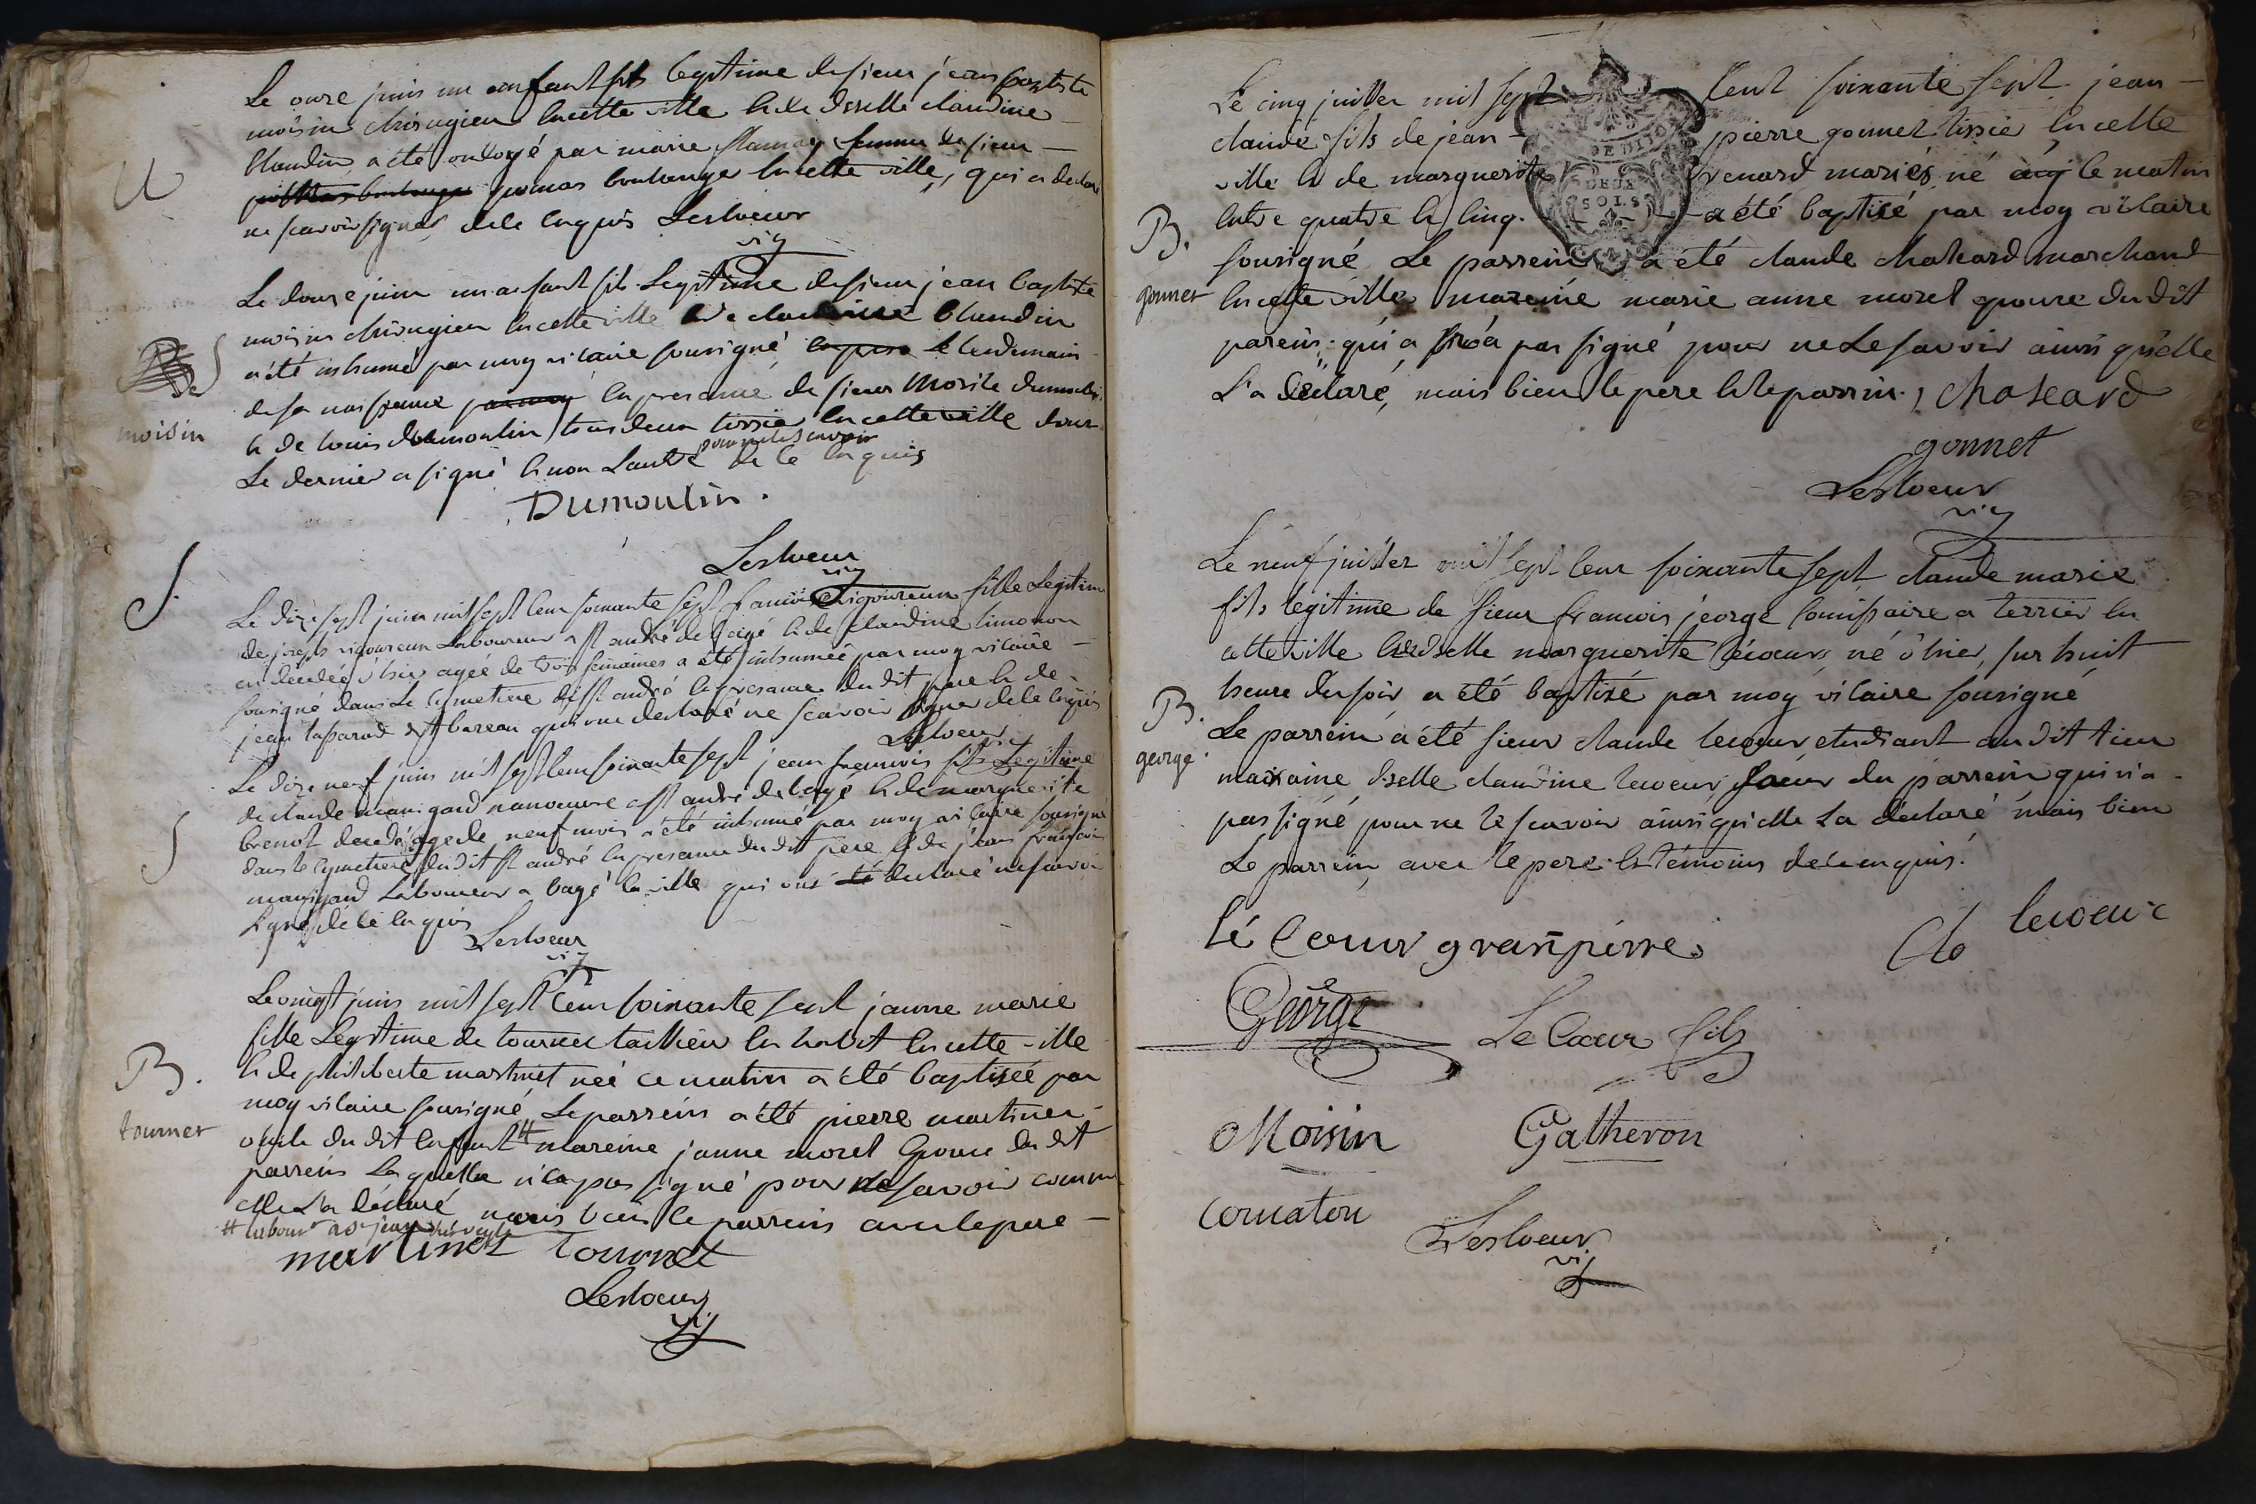 Le onze juin un enfant fils legitime de sieur jean baptiste
moisin chirugien en cette ville et de dselle claudine
blandin a été ondoyé par marie femme de sieur
pomas boulanger en cette ville, qui a declaré
ne scavoir signer de ce enquis Lesloeur
vic
Le douze juin un enfant fils Legitime de sieur jean baptiste
moisin chirugien en cette ville et de claudine blandin
a été inhumé par moy vicaire sousigné le lendemain
de sa naissance en presence de sieur
moisin
et de louis dumoulin tous deux tissier en cette ville dont
Le dernier a signé et non Lautre pour ne le scavoir de ce enquis
Dumoulin.
Lesloeur
vic
S.
Le dize sept juin mil sept cent soixante sept francoise vigoureux fille Legitime
de joseph vigoureux Laboureur a st andré de bagé et de claudine limonon
decedée d'hier agée de trois semaines a été inhumée par moy vicaire
sousigné dans Le cymetiere de st andré en presance du dit pere et de
jean qui ont declaré ne scavoir signer de ce enquis
Lesloeur
Le dize neuf juin mil sept cent soixante sept jean francois fils Legitime
de claude manigand manoeuvre a st andré de bagé et de marguerite
brenot decedé agé de neuf mois a été inhumé par moy vicaire sousigné
S
dans le cymetiere du dit st andré en presance du dit pere et de jean francois
manigand Laboureur a bagé la ville qui ont declaré ne scavoir
signer de ce enquis
Lesloeur
vic
Le vingt juin mil sept cent soixante sept janne marie
fille Legitime de tournet taillieur en habit en cette ville
B.
et de philiberte martinet née ce matin a été baptisée par
moy vicaire sousigné Le parrein a été pierre martinet
tournet
oncle du dit enfant # mareine janne morel epouse du dit
parrein Laquelle n'a pas signé pour ne scavoir comme
elle L'a declaré mais bien le parrein avec le pere
# labour a st jean
martinet tournet
Lesloeur
vic
Le cinq juillet mil sept cent soixante sept jean
claude fils de jean pierre gonnet tissié en cette
DE DIJON
DEUX
SOLS
ville et de marguerite renard mariés né le matin
entre quatre et cinq. a été baptisé par moy vicaire
B.
sousigné Le parrein a été claude chaseard marchand
gonnet
en cette ville mareine marie anne morel epouse du dit
parein qui n'a pas signé pour ne Le savoir ainsi qu'elle
L'a declaré, mais bien le pere et le parrin. chaseard
gonnet
Lesloeur
vic
Le neuf juillet mil sept cent soixante sept claude marie
fils legitime de sieur francois jeorge commissaire a terrier en
cette ville et de dselle marguerite lecoeur né d'hier, sur huit
heure du soir a été baptisé par moy vicaire sousigné
B.
Le parrein a été sieur claude lecoeur etudiant au dit lieu
george
maraine dselle claudine lecoeur soeur du parrein qui n'a
pas signé pour ne le scavoir ainsi qu'elle La declaré mais bien
Le parrein avec le pere et témoins de ce enquis.
lé Coeur granpérre
Cl lecoeur
George
Le Coeur fils
Moisin
Gatheron
cornaton
Lesloeur
vic